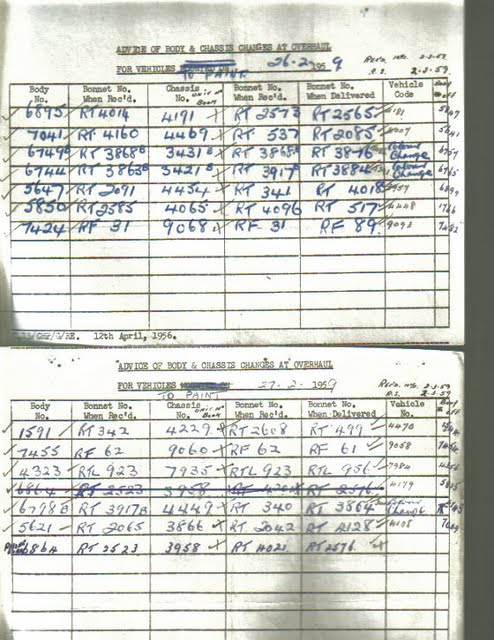 ADVICE OF BODY & CHASSIS CHANGES AT OVERHAUL
FOR VEHICLES TO PAINT 26-2-1959 Rec'd. 2-3-59
R.S. 2-3-59
Body No. Bonnet No. When Rec'd. Chassis No. Unit Book Bonnet No. When Rec'd. Bonnet No. When Delivered Vehicle Code Body OFF
6895 RT 4014 4191 RT 2573 RT 2565
7041 RT 4160 4469 RT 537 RT 2085
6749 RT 3868 3431 RT 3868 Colour Change 6757
6744 RT 3863 3421 RT 3917 RT 3884 Colour Change 6765
5647 RT 2091 4454 RT 341 RT 4018 6899
5850 RT 2585 4065 RT 4096 RT 517 4448
7424 RF 31 9068 RF 31 RF 89 9093 7482
12th April, 1956.
ADVICE OF BODY & CHASSIS CHANGES AT OVERHAUL
FOR VEHICLES TO PAINT 27-2-1959 Rec'd. 2-3-59
R.S. 2-3-59
Body No. Bonnet No. When Rec'd. Chassis No. Unit Book Bonnet No. When Rec'd. Bonnet No. When Delivered Vehicle No. Body OFF
1591 RT 342 4229 RT 2608 RT 499 4470
7455 RF 62 9060 RF 62 RF 61 9058
4323 RTL 923 7935 RTL 923 RTL 956 7984
6864 RT 2523 3958 RT 2576 4179
6798 RT 3917 4449 RT 340 RT 3864 Colour Change
5621 RT 2065 3866 RT 2042 RT 2128 4105
6864 RT 2523 3958 RT 4021 RT 2576